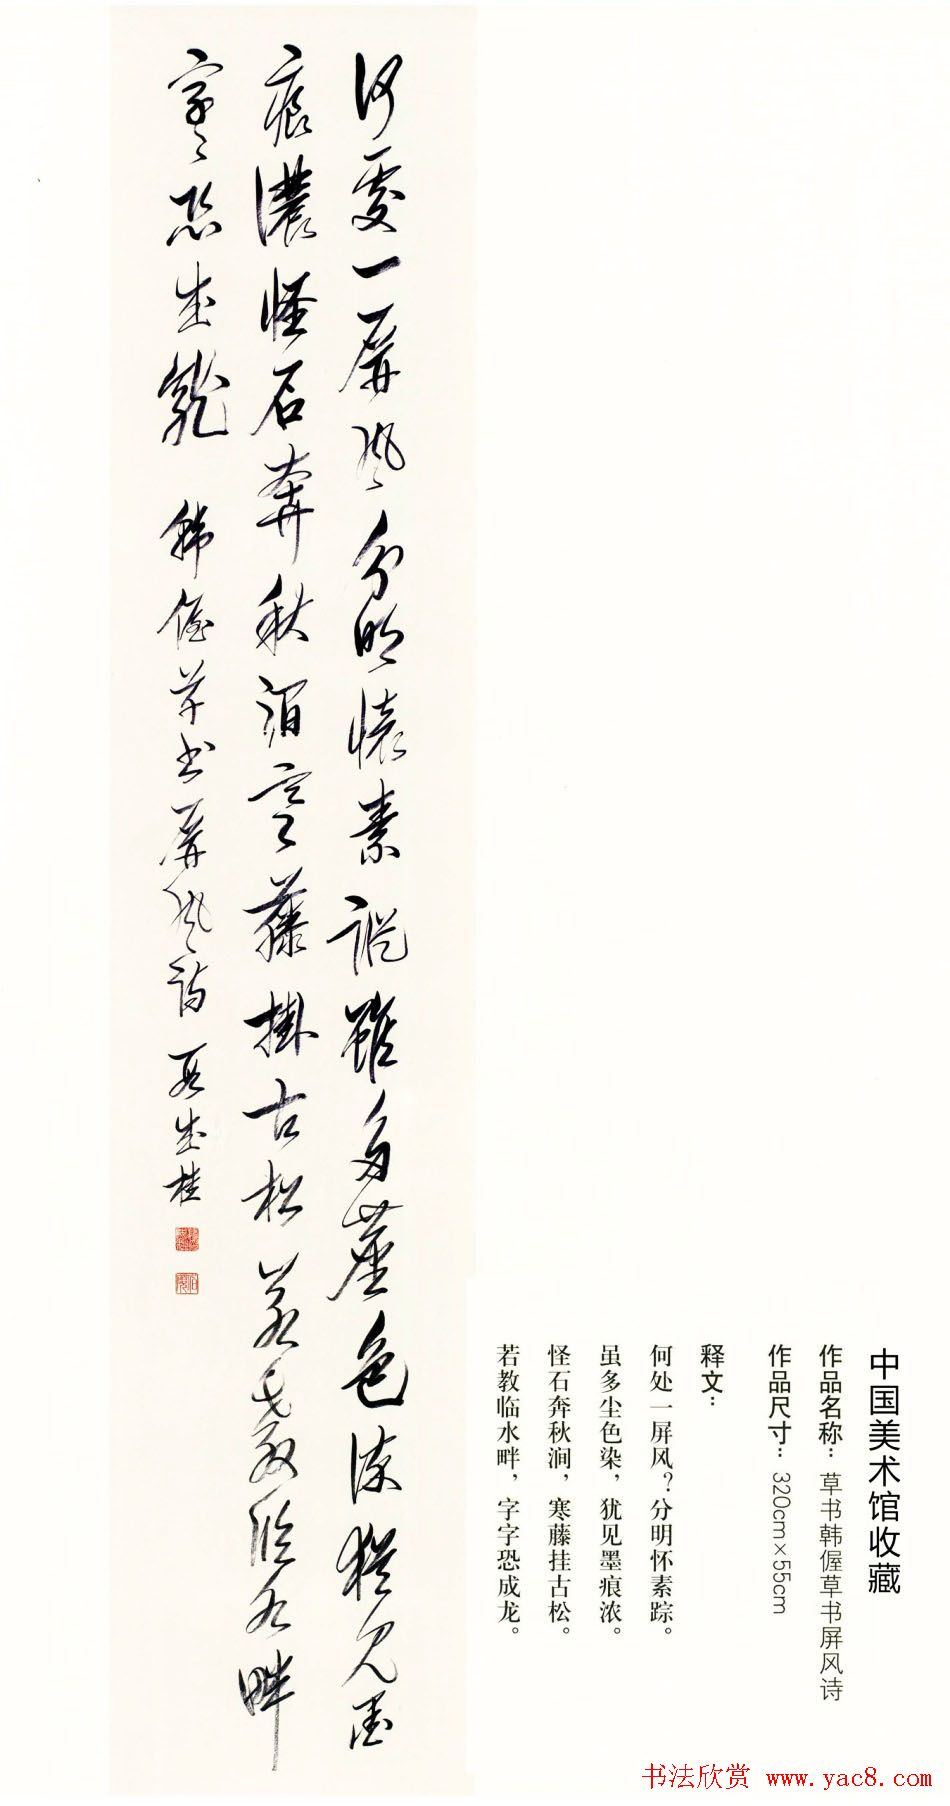 何處一屏風分明懷素蹤雖多塵色染猶見墨
痕濃怪石奔秋澗寒藤掛古松若教臨水畔
字字恐成龍 韓偓草書屏風詩 段成桂
中国美术馆收藏
作品名称：草书韩偓草书屏风诗
作品尺寸：320cm×55cm
释文：
何处一屏风？分明怀素踪。
虽多尘色染，犹见墨痕浓。
怪石奔秋涧，寒藤挂古松。
若教临水畔，字字恐成龙。
书法欣赏 www.yac8.com